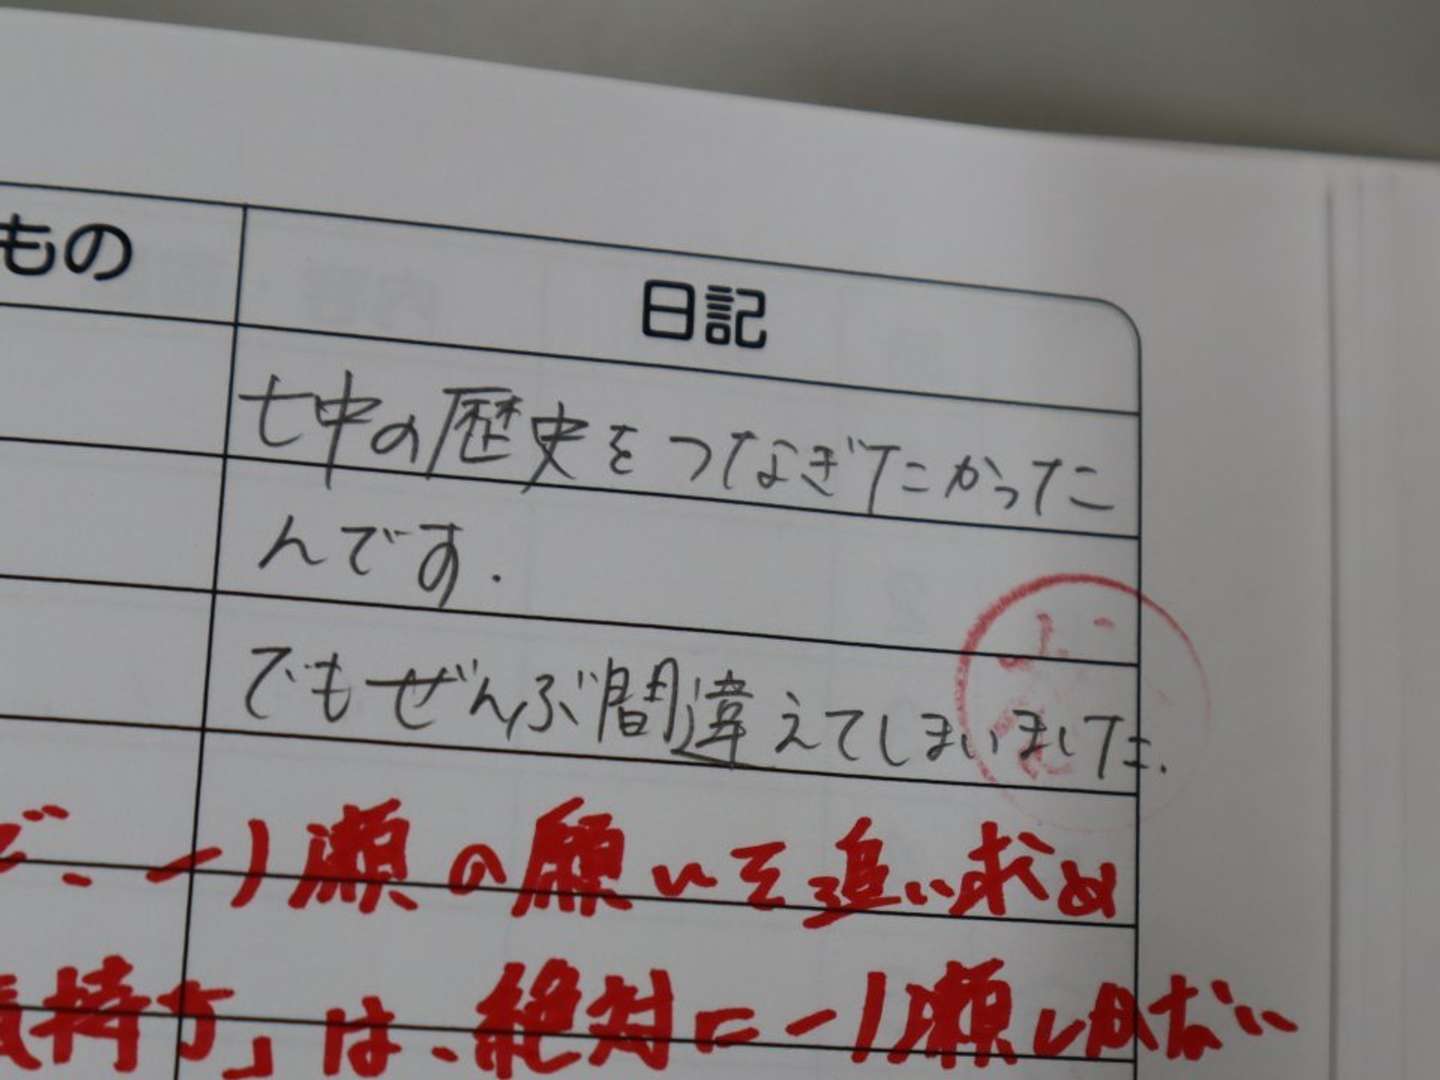 もの
日記
七中の歴史をつなぎたかった
んです.
でもぜんぶ間違えてしまいました.
で、一瀬の願いを追い求め
気持ち」は、絶対に一瀬しかない